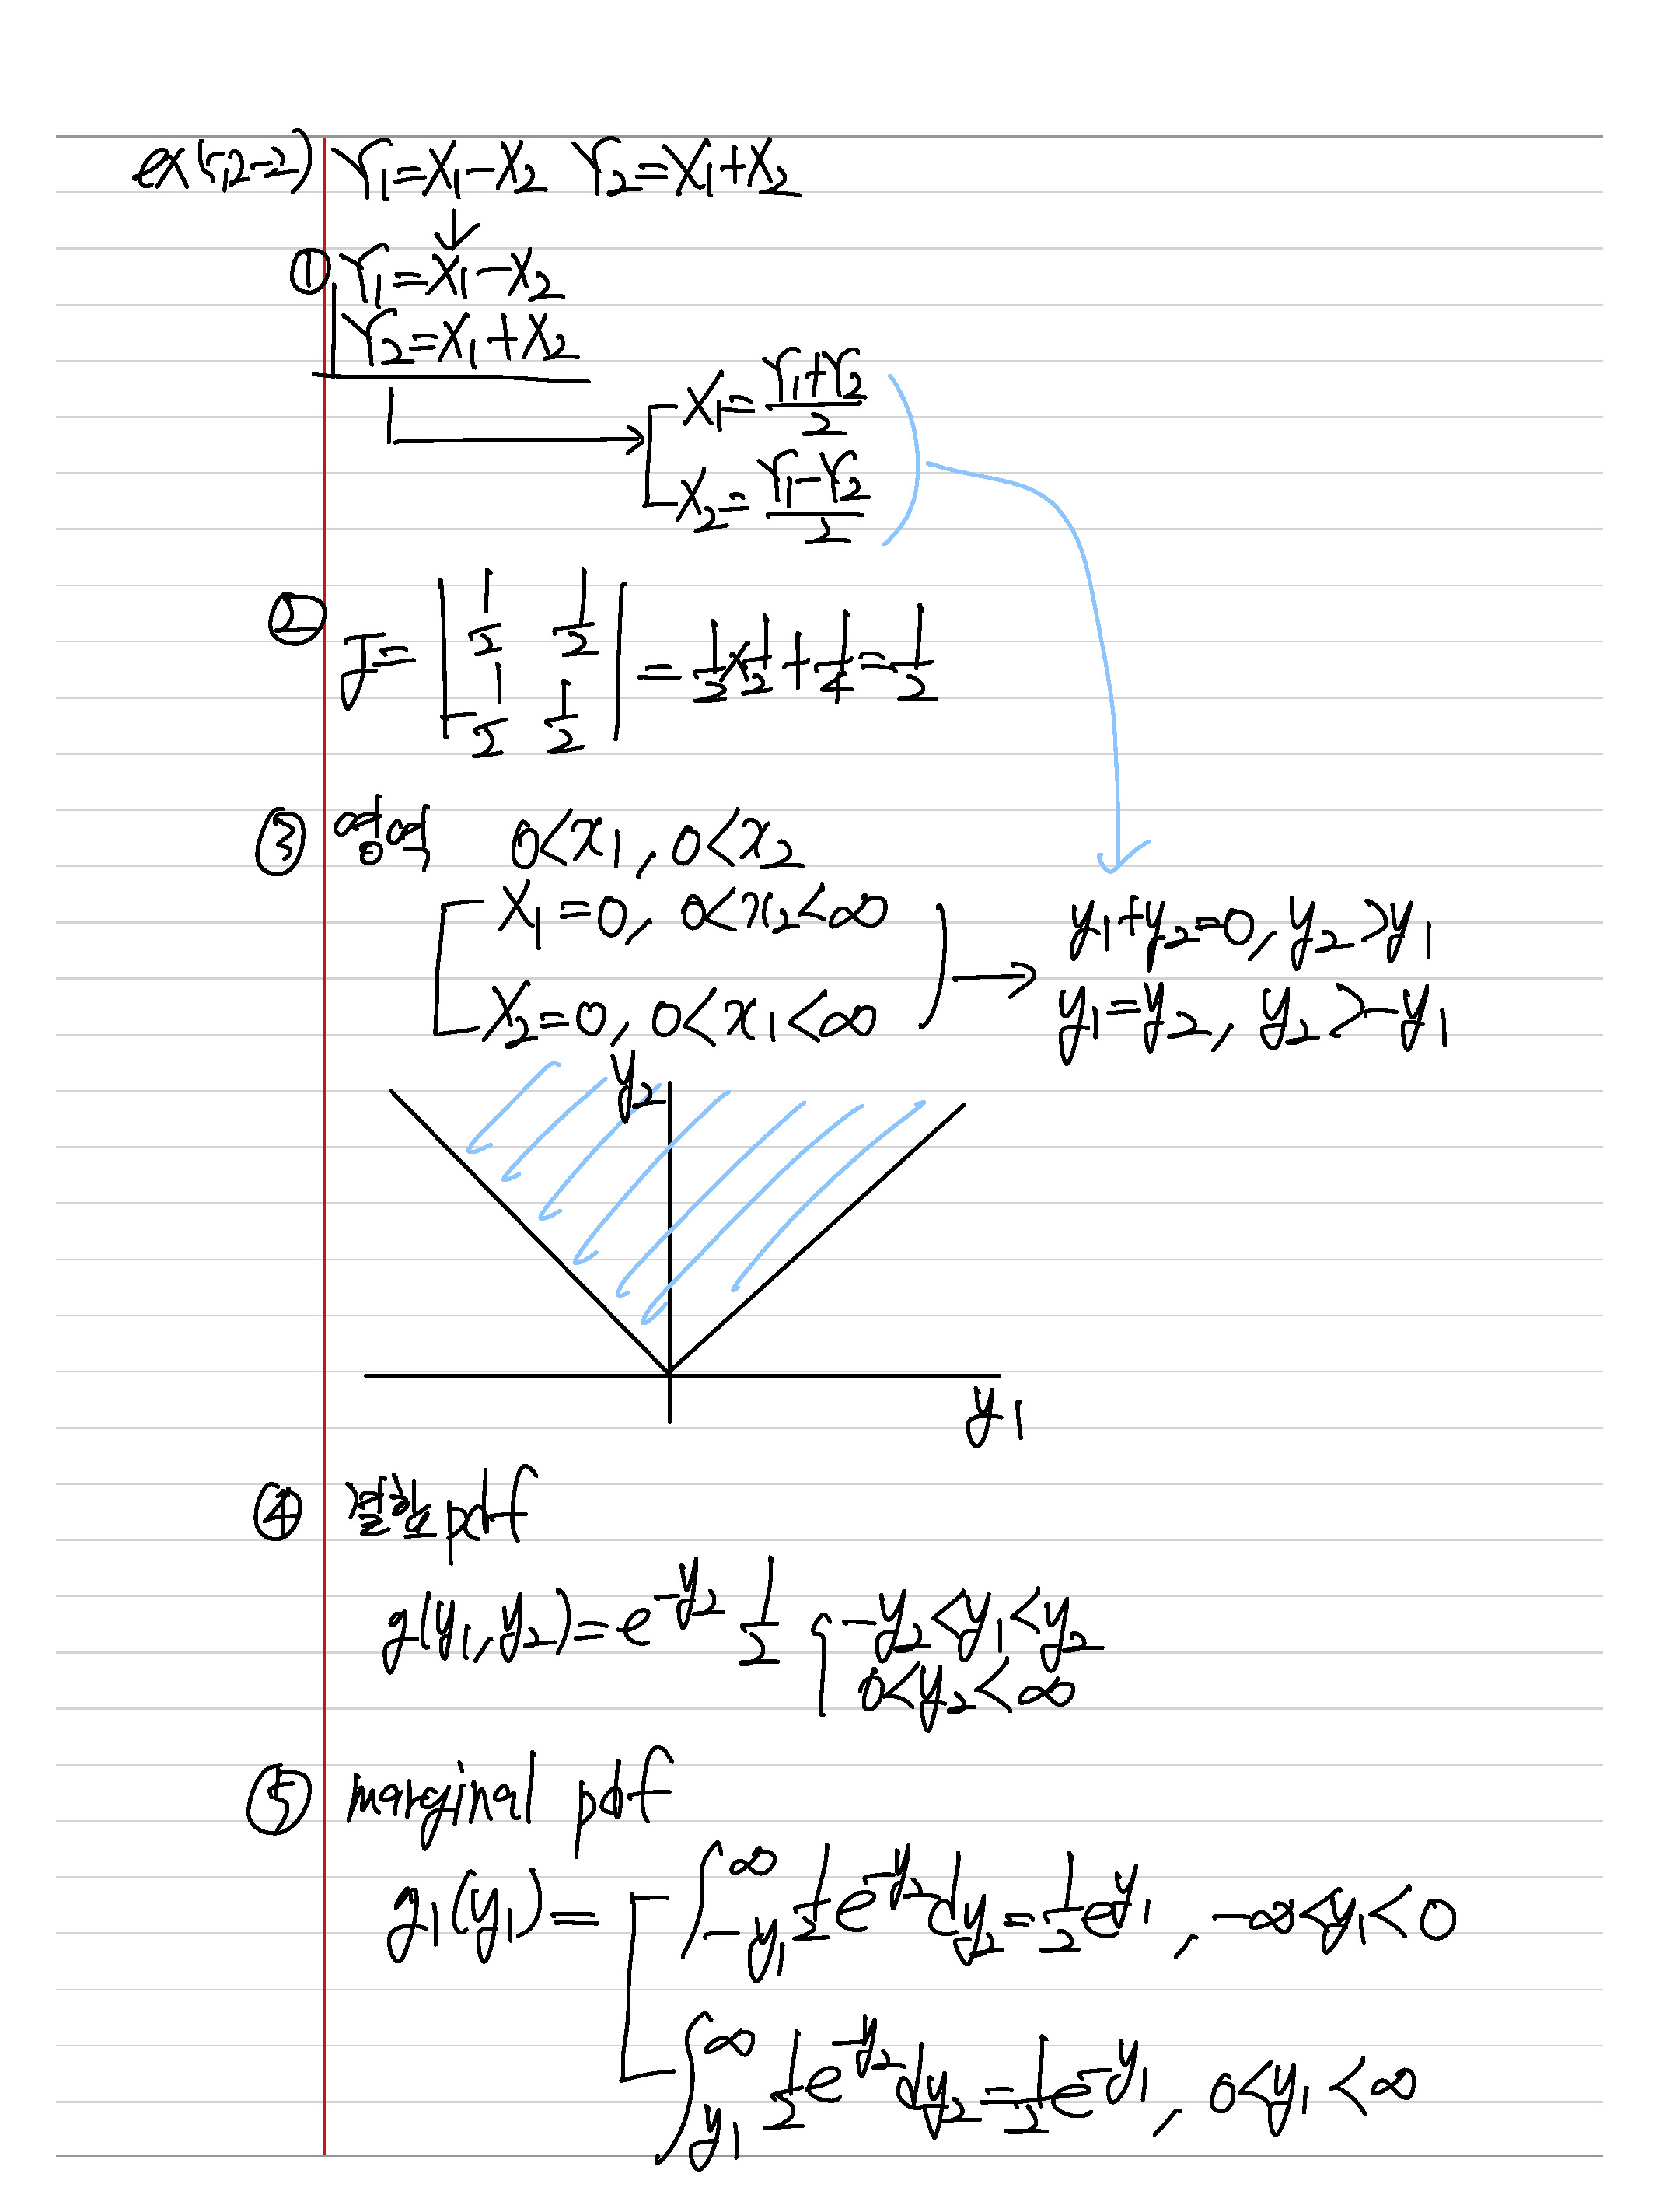 ex(5.2-2) Y₁=X₁-X₂ Y₂=X₁+X₂
↓
① Y₁=X₁-X₂
Y₂=X₁+X₂
→ X₁=(Y₁+Y₂)/2
X₂=(Y₁-Y₂)/2
② J=|1/2 1/2; -1/2 1/2|=1/2×1/2+1/4=1/2
③ 영역 0<x₁, 0<x₂
X₁=0, 0<x₂<∞ → y₁+y₂=0, y₂>y₁
X₂=0, 0<x₁<∞ y₁=y₂, y₂>-y₁
y₂
y₁
④ 결합 pdf
g(y₁,y₂)=e^(-y₂) 1/2 { -y₂<y₁<y₂
0<y₂<∞
⑤ marginal pdf
g₁(y₁)= ∫_{-y₁}^{∞} 1/2 e^(-y₂)dy₂=1/2 e^(y₁), -∞<y₁<0
∫_{y₁}^{∞} 1/2 e^(-y₂)dy₂=1/2 e^(-y₁), 0<y₁<∞